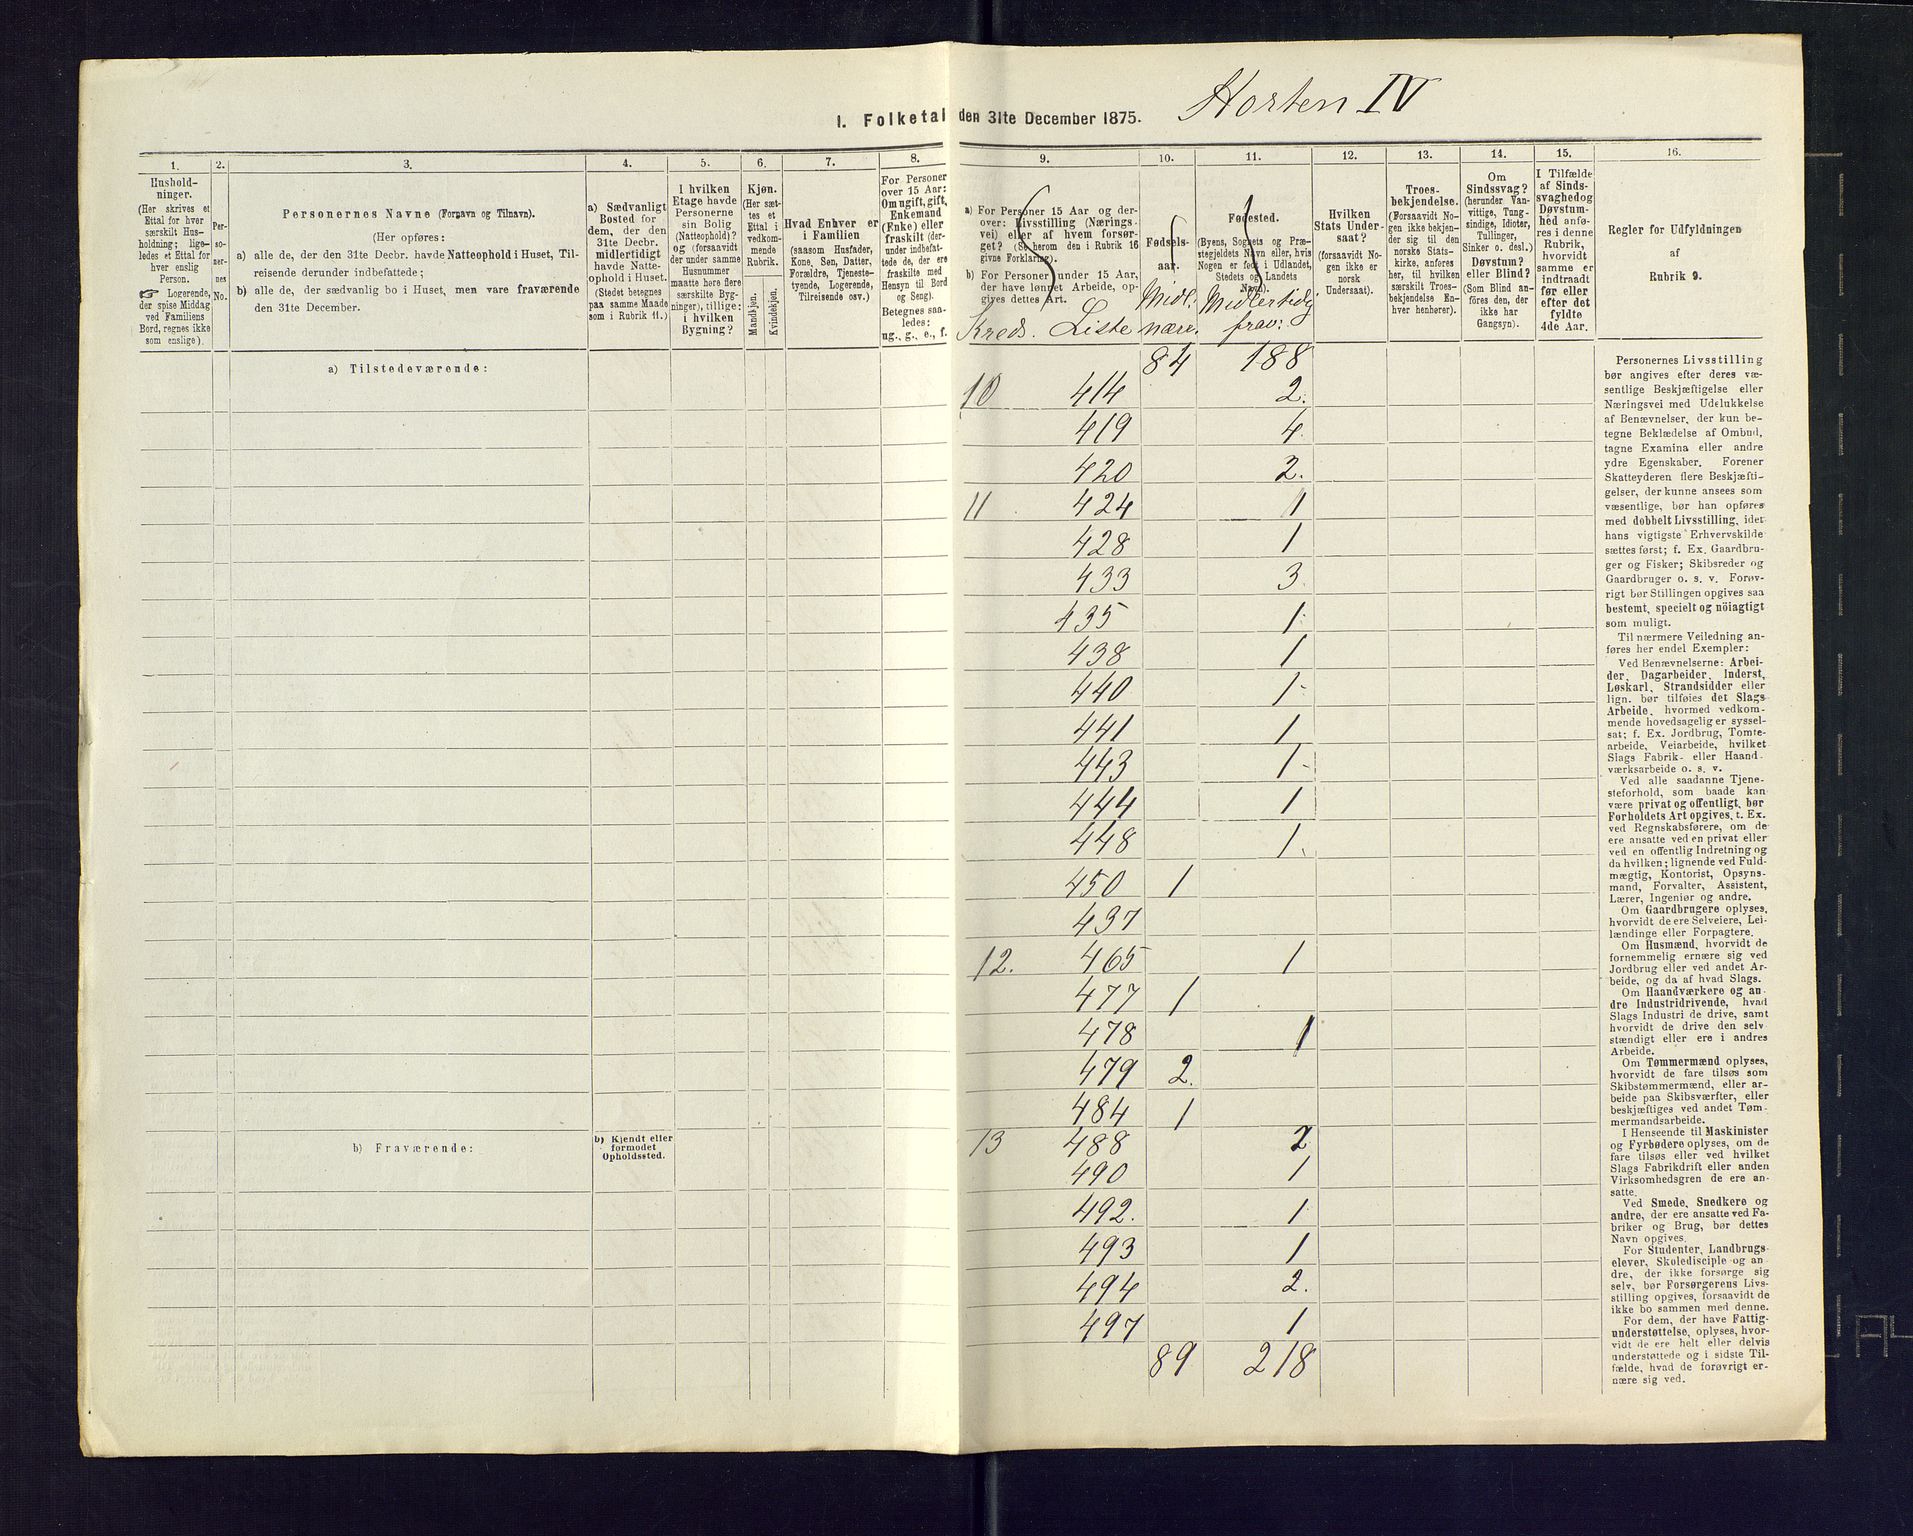 Horten IV
I. Folketal den 31te December 1875.
1.
Hushold-
ninger.
(Her skrives et
Ettal for hver
særskilt Hus-
holdning; lige-
ledes et Ettal for
hver enslig
Person.
☞ Logerende,
der spise Middag
ved Familiens
Bord, regnes ikke
som enslige).
2.
Per-
so-
ner-
nes
No.
3.
Personernes Navne (Fornavn og Tilnavn).
(Her opføres:
a) alle de, der den 31te Decbr. havde Natteophold i Huset, Til-
reisende derunder indbefattede;
b) alle de, der sædvanlig bo i Huset, men vare fraværende
den 31te December.
4.
a) Sædvanligt
Bosted for
dem, der den
31te Decbr.
midlertidigt
havde Natte-
ophold i Huset.
(Stedet betegnes
paa samme Maade
som i Rubrik 11.)
5.
I hvilken
Etage havde
Personerne
sin Bolig
(Natteophold)?
og (forsaavidt
der under samme
Husnummer
maatte høre flere
særskilte Byg-
ninger), tillige:
i hvilken
Bygning?
6.
Kjøn.
(Her sæt-
tes et
Ettal i
vedkom-
mende
Rubrik.
Mandkjøn.
Kvindekjøn.
7.
Hvad Enhver er
i Familien
(saasom Husfader,
Kone, Søn, Datter,
Forældre, Tjeneste-
tyende, Logerende,
Tilreisende osv.)
8.
For Personer
over 15 Aar:
Om ugift, gift,
Enkemand
(Enke) eller
fraskilt (der-
under indbefat-
tede de, der ere
fraskilte med
Hensyn til Bord
og Seng).
Betegnes saa-
ledes:
ug., g., e., f.
9.
a) For Personer 15 Aar og der-
over: Livsstilling (Nærings-
vei) eller af hvem forsør-
get? (Se herom den i Rubrik 16
givne Forklaring).
b) For Personer under 15 Aar,
der have lønnet Arbeide, op-
gives dettes Art.
Kreds. Liste
10.
Fødsels-
aar.
Midl.
nære.
11.
Fødested.
(Byens, Sognets og Præ-
stegjeldets Navn eller, hvis
Nogen er født i Udlandet,
Stedets og Landets
Navn).
Midlertidig
frav:
12.
Hvilken
Stats Under-
saat?
(forsaavidt No-
gen ikke er
norsk
Undersaat).
13.
Troes-
bekjendelse.
(Forsaavidt No-
gen ikke bekjen-
der sig til den
norske Stats-
kirke, anføres
her, til hvilken
særskilt Troes-
bekjendelse En-
hver henhører).
14.
Om
Sindssvag?
(herunder Van-
vittige, Tung-
sindige, Idioter,
Tullinger,
Sinker o. desl.)
Døvstum?
eller Blind?
(Som Blind an-
føres den, der
ikke har
Gangsyn).
15.
I Tilfælde
af Sinds-
svaghedog
Døvstum-
hed anfø-
res i denne
Rubrik,
hvorvidt
samme er
indtraadt
før eller
efter det
fyldte
4de Aar.
16.
Regler for Udfyldningen
af
Rubrik 9.
a) Tilstedeværende:
84 188
10 414 2.
419 4.
420 2.
11 424 1
428 1
433 3.
435 1.
438 1
440 1
441 1
443 1
444 1
448 1.
450 1
437
12. 465 1
477 1
478 1
479 2.
484 1
b) Fraværende:
b) Kjendt eller
formodet
Opholdssted.
13 488 2
490 1
492. 1
493 1
494 2.
497 1
89 218
Personernes Livsstilling
bør angives efter deres væ-
sentlige Beskjæftigelse eller
Næringsvei med Udelukkelse
af Benævnelser, der kun be-
tegne Beklædelse af Ombud,
tagne Examina eller andre
ydre Egenskaber. Forener
Skatteyderen flere Beskjæfti-
gelser, der kunne ansees som
væsentlige, bør han opføres
med dobbelt Livsstilling, idet
hans vigtigste Erhvervskilde
sættes først; f. Ex. Gaardbru-
ger og Fisker; Skibsreder og
Gaardbruger o. s. v. Forøv-
rigt bør Stillingen opgives saa
bestemt, specielt og nöiagtigt
som muligt.
Til nærmere Veiledning an-
føres her endel Exempler:
Ved Benævnelserne: Arbei-
der, Dagarbeider, Inderst,
Løskarl, Strandsidder eller
lign. bør tilføies det Slags
Arbeide, hvormed vedkom-
mende hovedsagelig er syssel-
sat; f. Ex. Jordbrug, Tomte-
arbeide, Veiarbeide, hvilket
Slags Fabrik- eller Haand-
værksarbeide o. s. v.
Ved alle saadanne Tjene-
steforhold, som baade kan
være privat og offentligt, bør
Forholdets Art opgives, t. Ex.
ved Regnskabsførere, om de
ere ansatte ved en privat eller
ved en offentlig Indretning og
da hvilken; lignende ved Fuld-
mægtig, Kontorist, Opsyns-
mand, Forvalter, Assistent,
Lærer, Ingeniør og andre.
Om Gaardbrugere oplyses,
hvorvidt de ere Selveiere, Lei-
lændinge eller Forpagtere.
Om Husmænd, hvorvidt de
fornemmelig ernære sig ved
Jordbrug eller ved andet Ar-
beide, og da af hvad Slags.
Om Haandværkere og an-
dre Industridrivende, hvad
Slags Industri de drive, samt
hvorvidt de drive den selv-
stændigt eller ere i andres
Arbeide.
Om Tømmermænd oplyses,
hvorvidt de fare tilsøs som
Skibstømmermænd, eller ar-
beide paa Skibsværfter, eller
beskjæftiges ved andet Tøm-
mermandsarbeide.
I Henseende til Maskinister
og Fyrbødere oplyses, om de
fare tilsøs eller ved hvilket
Slags Fabrikdrift eller anden
Virksomhedsgren de ere an-
satte.
Ved Smede, Snedkere og
andre, der ere ansatte ved Fa-
briker og Brug, bør dettes
Navn opgives.
For Studenter, Landbrugs-
elever, Skoledisciple og an-
dre, der ikke forsørge sig
selv, bør Forsørgerens Livs-
stilling opgives, forsaavidt de
ikke bo sammen med denne.
For dem, der have Fattig-
understøttelse, oplyses, hvor-
vidt de ere helt eller delvis
understøttede og i sidste Til-
fælde, hvad de forøvrigt er-
nære sig ved.